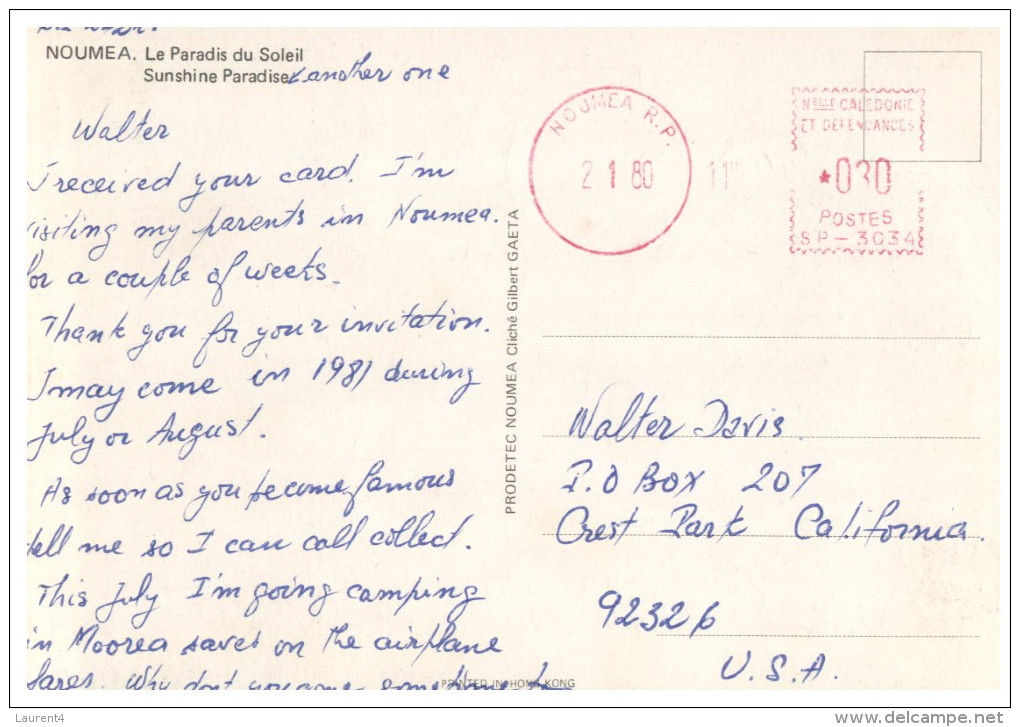 NOUMEA. Le Paradis du Soleil
Sunshine Paradise & another one
Walter
I received your card. I'm
visiting my parents in Noumea.
for a couple of weeks.
Thank you for your invitation.
I may come in 1981 during
July or August.
As soon as you become famous
tell me so I can call collect.
This July I'm going camping
in Moorea saves on the airplane
fares. Why don't you come sometime to
PRODETEC NOUMEA Cliché Gilbert GAETA
PRINTED IN HONG KONG
NOUMEA R.P.
2 1 80
11H
NELLE CALEDONIE
ET DEPENDANCES
*030
POSTES
SP-3034
Walter Davis.
P.O Box 207
Crest Park California.
92326
U.S.A.
Laurent4
delcampe.net